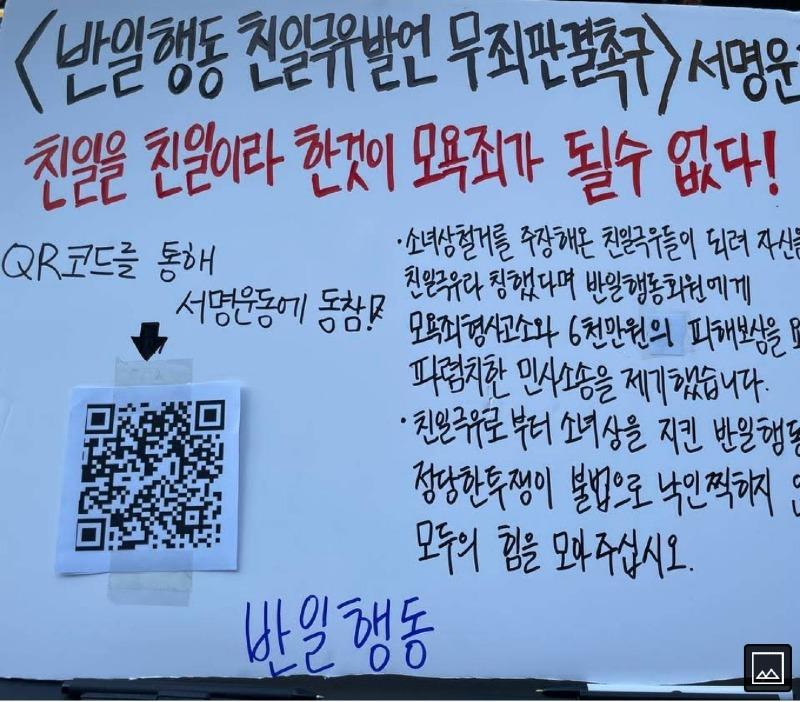 <반일행동 친일극우발언 무죄판결촉구> 서명운
친일을 친일이라 한것이 모욕죄가 될수 없다!
QR코드를 통해
서명운동에 동참!
·소녀상철거를 주장해온 친일극우들이 되려 자신을
친일극우라 칭했다며 반일행동회원에게
모욕죄형사고소와 6천만원의 피해보상을
파렴치한 민사소송을 제기했습니다.
·친일극우로부터 소녀상을 지킨 반일행동
정당한투쟁이 불법으로 낙인찍히지
모두의 힘을 모아주십시오.
반일행동